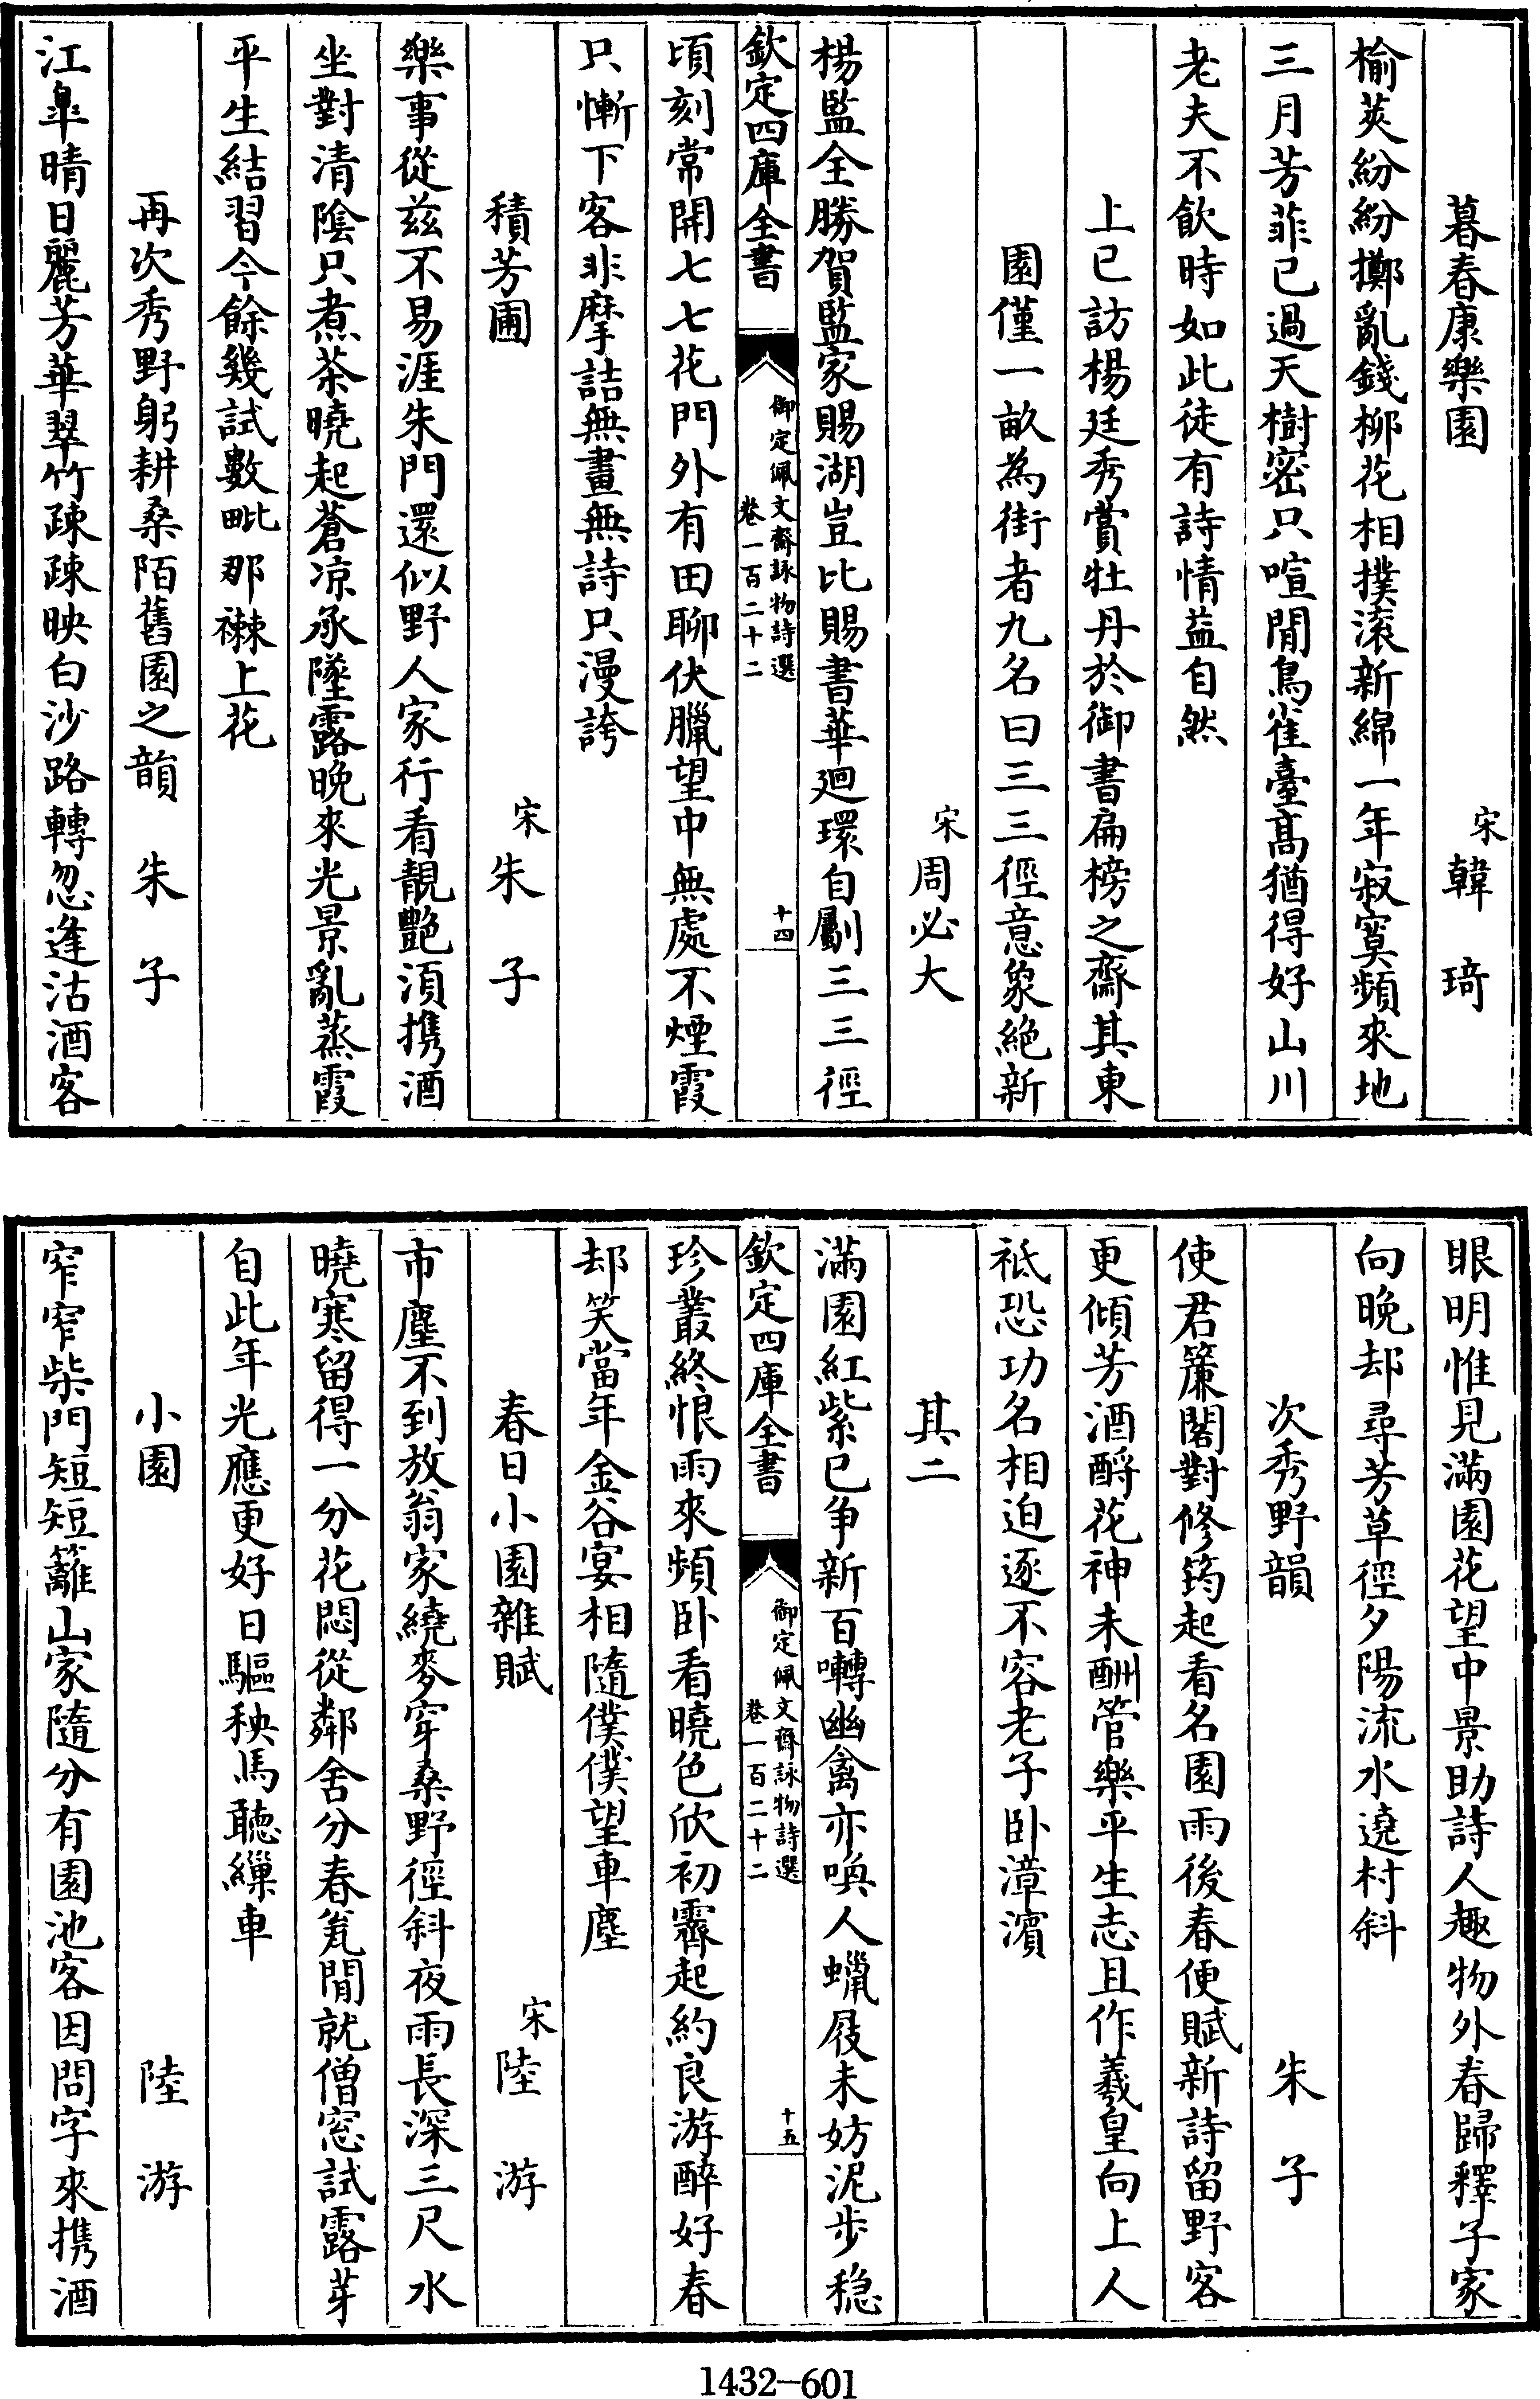 暮春康樂園　宋韓琦
榆莢紛紛擲亂錢柳花相撲滚新綿一年寂寞頻來地
三月芳菲已過天樹密只喧閒鳥雀臺髙猶得好山川
老夫不飲時如此徒有詩情益自然
上巳訪楊廷秀賞牡丹於御書扁榜之齋其東
園僅一畝為街者九名曰三三徑意象絶新
宋周必大
楊監全勝賀監家賜湖豈比賜書華廻環自劚三三徑
欽定四庫全書　御定佩文齋詠物詩選　卷一百二十二　十四
頃刻常開七七花門外有田聊伏臘望中無處不煙霞
只慚下客非摩詰無畫無詩只漫誇
積芳圃　宋朱子
樂事從兹不易涯朱門還似野人家行看靚艷湏携酒
坐對清隂只煮茶曉起蒼凉承墜露晚來光景亂蒸霞
平生結習今餘幾試數毗那襋上花
再次秀野躬耕桑陌舊園之韻　朱子
江臯晴日麗芳華翠竹疎疎映白沙路轉忽逢沽酒客
眼明惟見滿園花望中景助詩人趣物外春歸釋子家
向晚却尋芳草徑夕陽流水遶村斜
次秀野韻　朱子
使君簾閣對修筠起看名園雨後春便賦新詩留野客
更傾芳酒酹花神未酬管樂平生志且作羲皇向上人
祗恐功名相迫逐不容老子卧漳濱
其二
滿園紅紫已爭新百囀幽禽亦喚人蠟屐未妨泥步穏
欽定四庫全書　御定佩文齋詠物詩選　卷一百二十二　十五
珍叢終恨雨來頻卧看曉色欣初霽起約良游醉好春
却笑當年金谷宴相隨僕僕望車塵
春日小園雜賦　宋陸游
市塵不到放翁家繞麥穿桑野徑斜夜雨長深三尺水
曉寒留得一分花悶從鄰舍分春瓮閒就僧窓試露芽
自此年光應更好日驅秧馬聽繅車
小園　陸游
窄窄柴門短短籬山家隨分有園池客因問字來携酒
1432-601